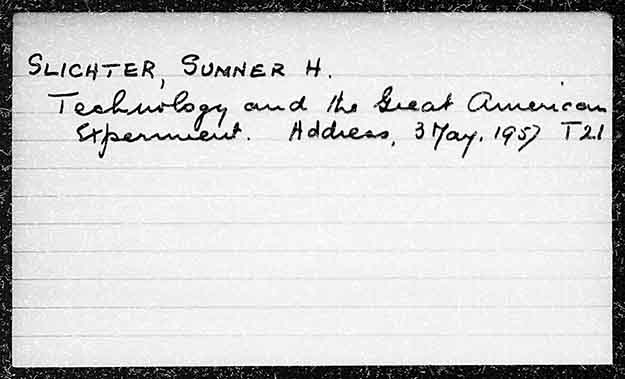 SLICHTER, SUMNER H.
Technology and the Great American
Experiment. Address, 3 May. 1957 T21